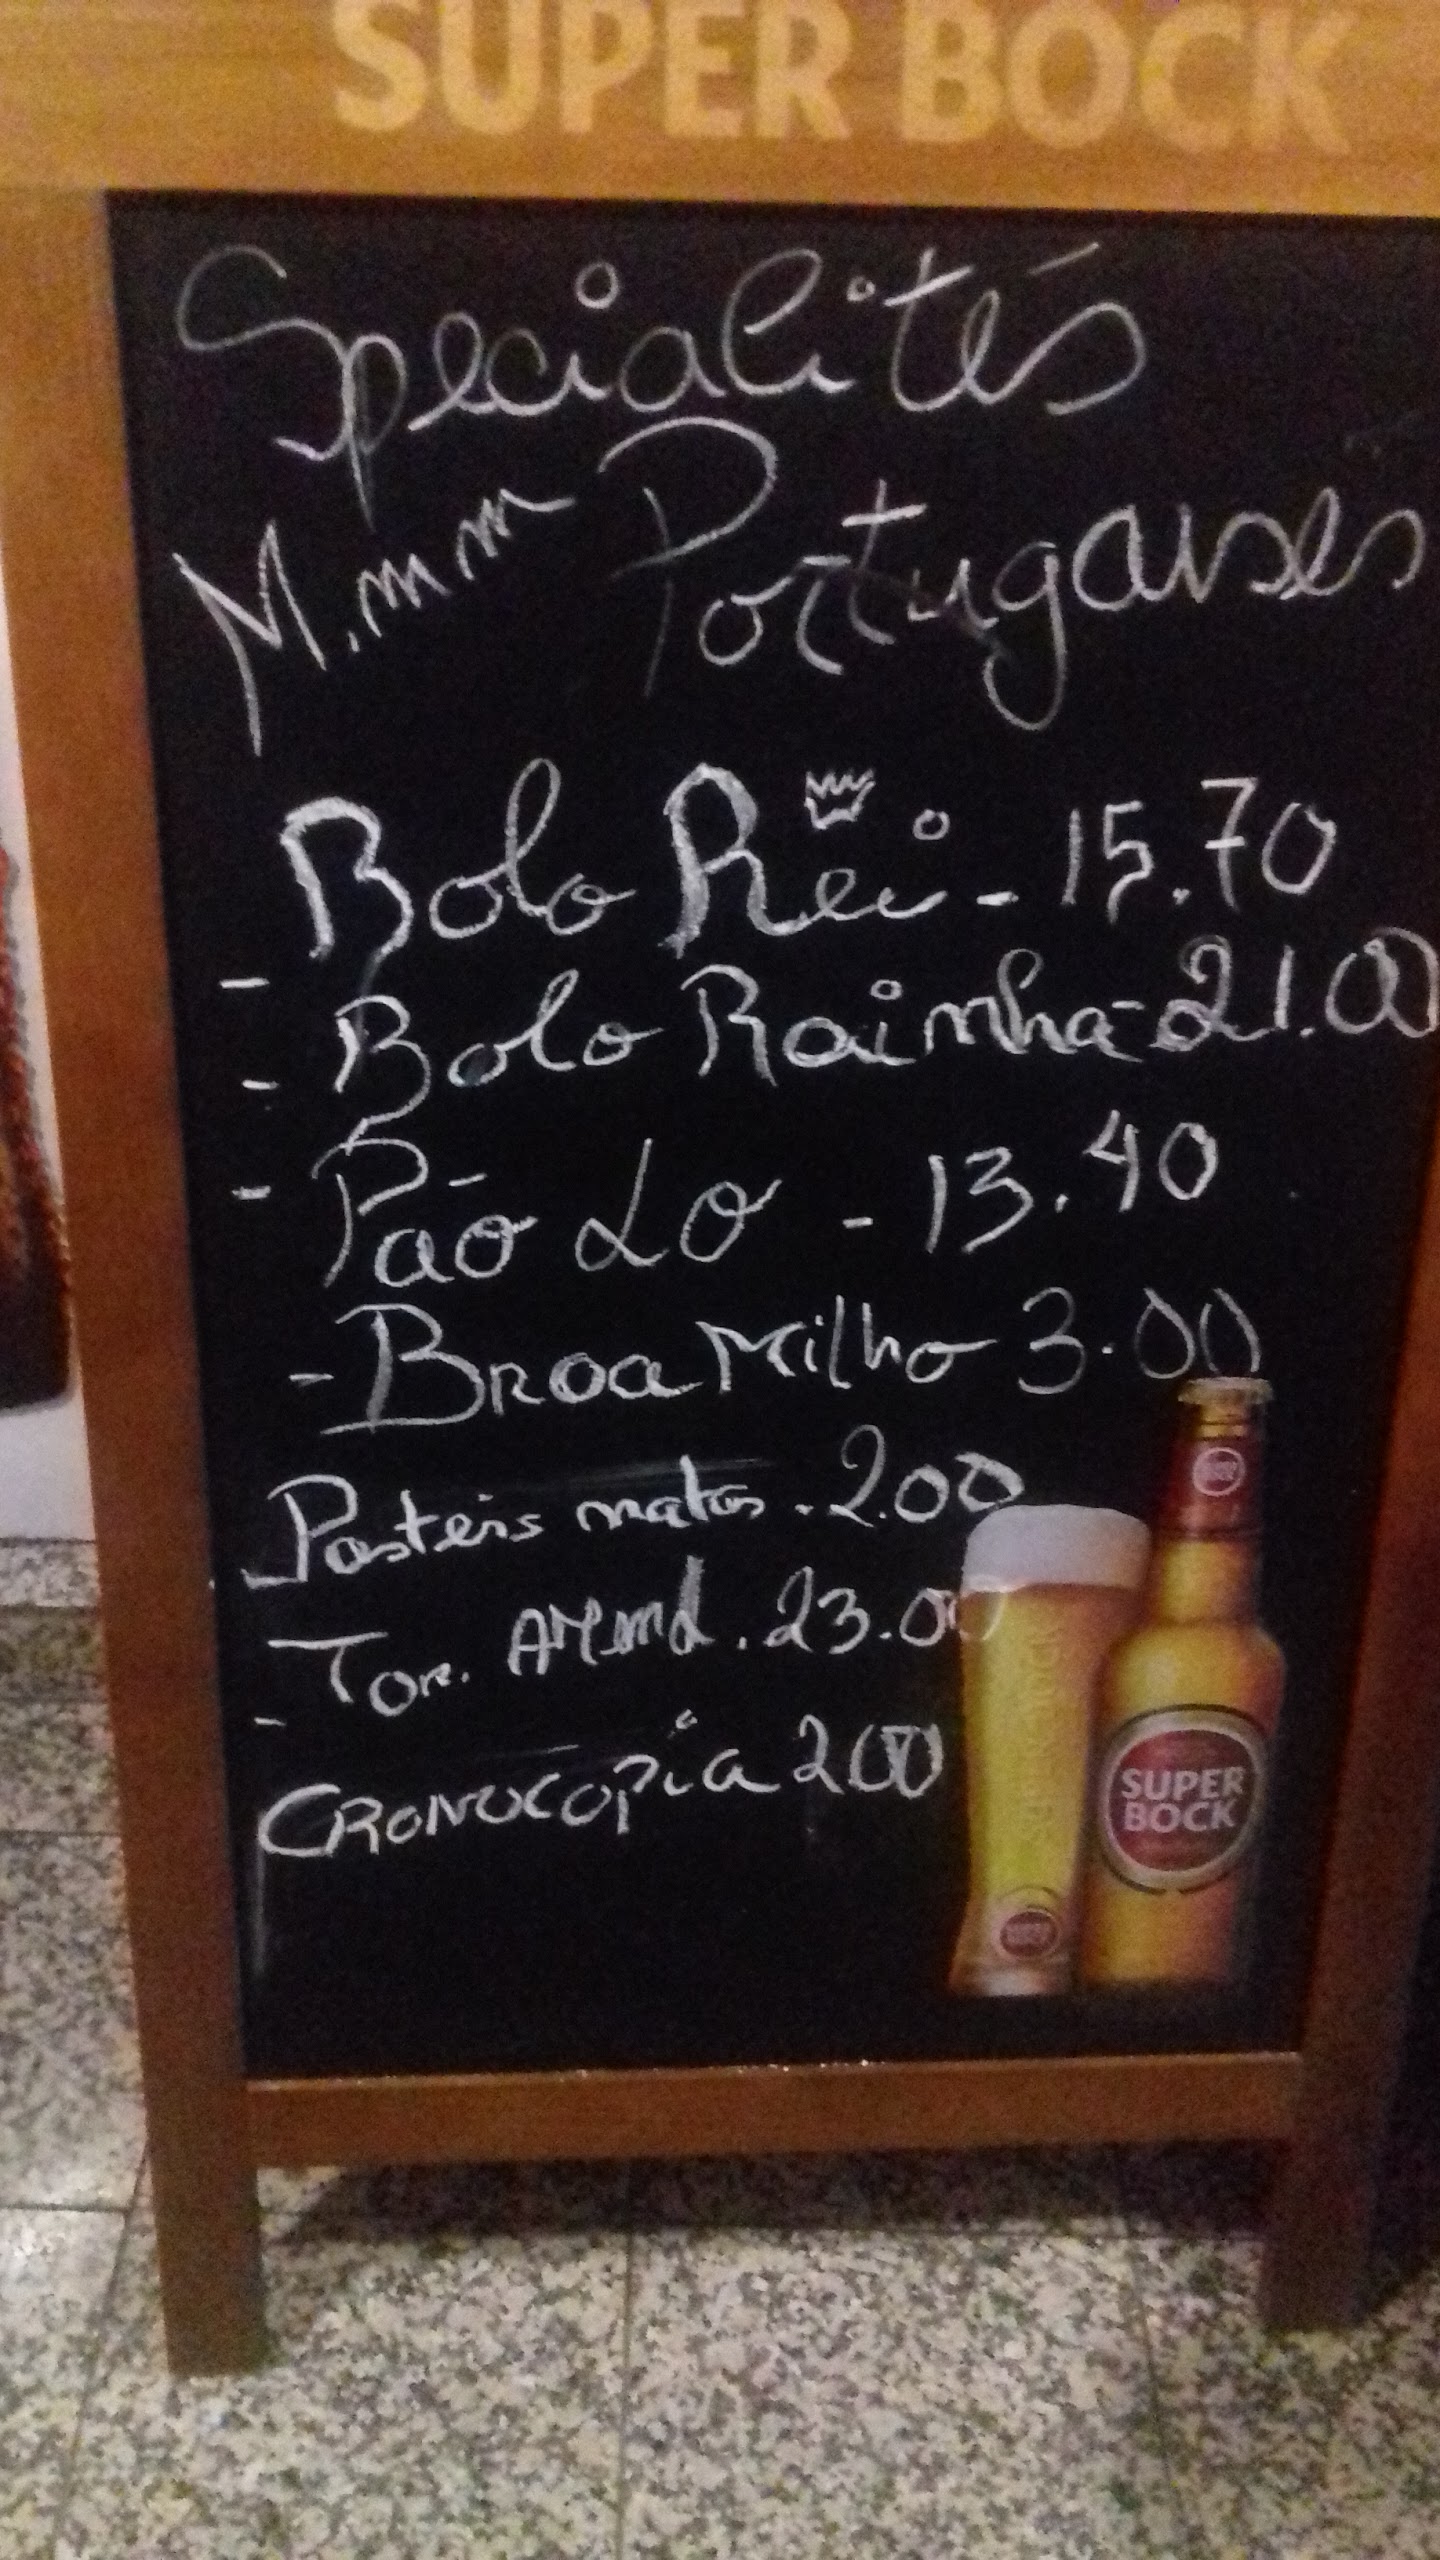 SUPER BOCK
Specialités
M.mm Portugaises
Bolo Rei - 15.70
- Bolo Rainha - 21.00
- Pão Lo - 13.40
- Broa Milho 3.00
Pasteis natas . 2.00
Tor. AMend. 23.00
- CRONUCOPia 200
SUPER
BOCK